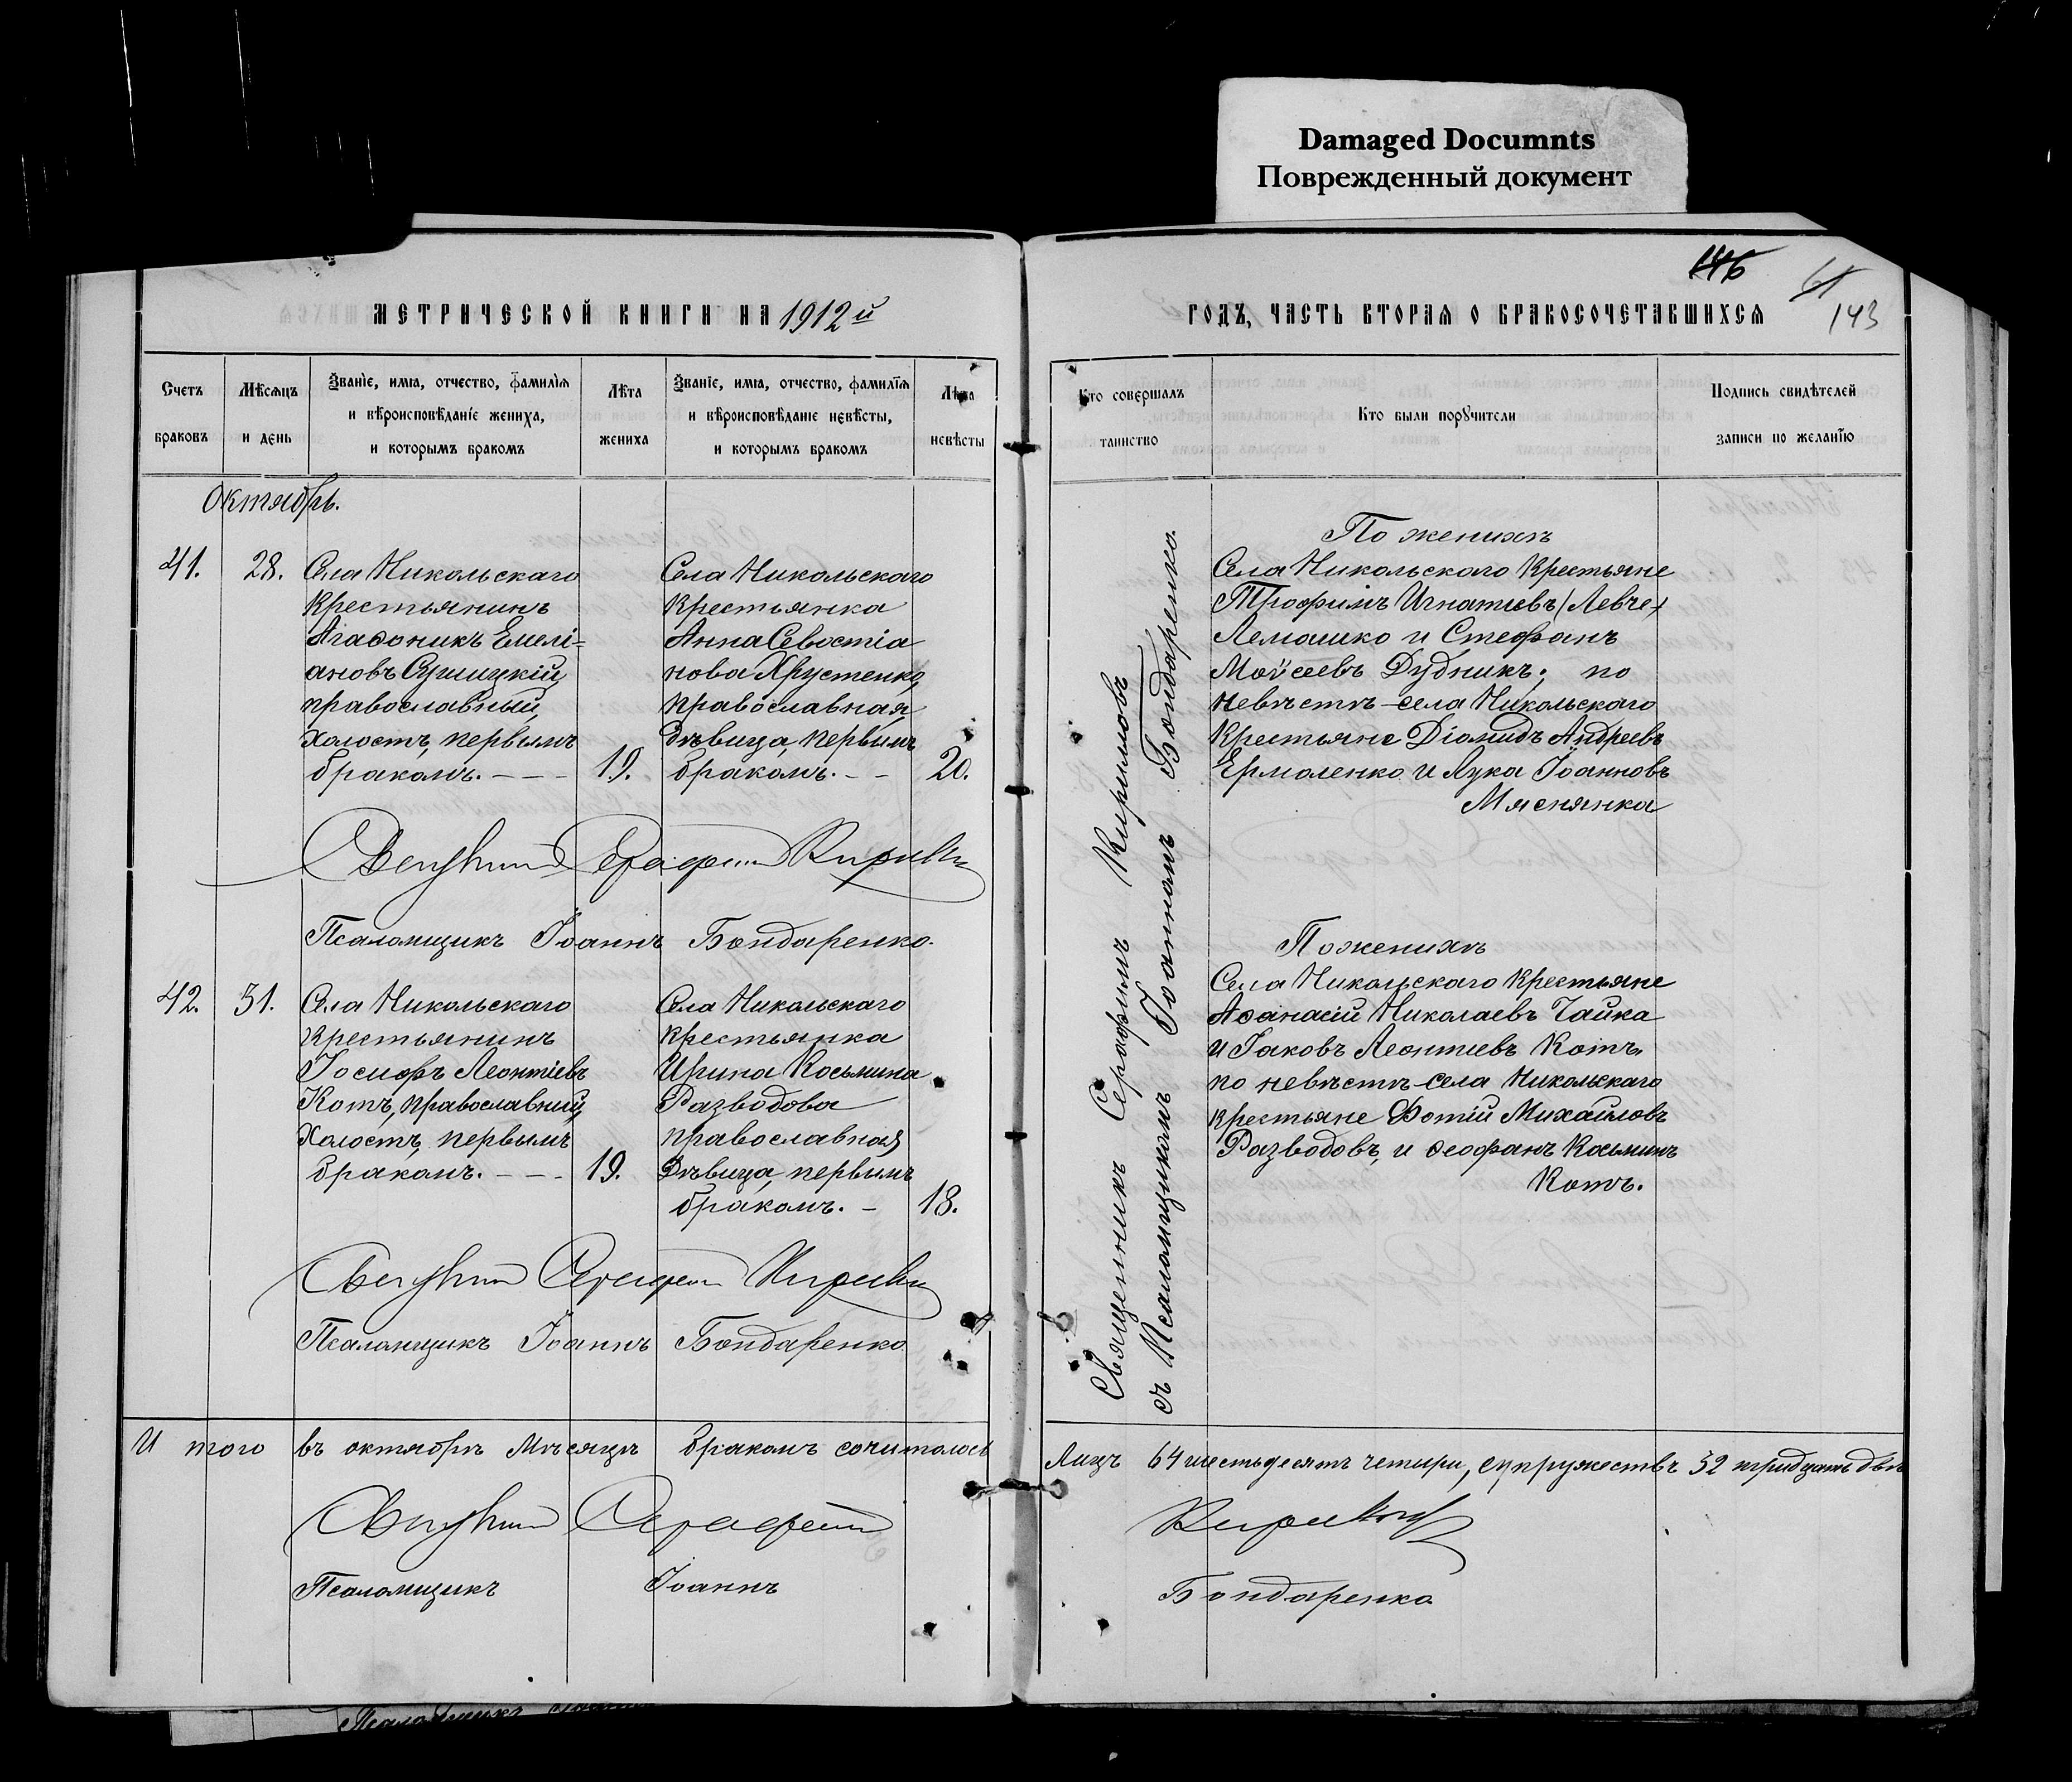 Damaged Documnts
Поврежденный документ
146
61
143
МЕТРИЧЕСКОЙ КНИГИ НА 1912й
ГОДЪ, ЧАСТЬ ВТОРАЯ О БРАКОСОЧЕТАВШИХСЯ
Счетъ браковъ
Мѣсяцъ и день
Званіе, имя, отчество, фамилія
и вѣроисповѣданіе жениха,
и которымъ бракомъ
Лѣта жениха
Званіе, имя, отчество, фамилія
и вѣроисповѣданіе невѣсты,
и которымъ бракомъ
Лѣта невѣсты
Кто совершалъ таинство
Кто были поручители
Подпись свидѣтелей
записи по желанію
Октябрь.
41.
28.
Села Никольскаго
Крестьянинъ
Агаѳоникъ Емелі-
ановъ
православный,
холостъ, первымъ
бракомъ. - - -
19.
Села Никольскаго
Крестьянка
Анна Севостіа
нова Хрустенко,
православная
дѣвица, первымъ
бракомъ. - -
20.
Священникъ Серафимъ Кириловъ
съ Псаломщикомъ Іоанномъ Бондаренко.
По женихѣ
Села Никольскаго Крестьяне
Трофимъ Игнатіевъ (Левче)
Лемашко и Стефанъ
Моѵсеевъ Дудникъ; по
невѣстѣ - села Никольскаго
Крестьяне Діомидъ Андреевъ
Ермоленко и Лука Іоанновъ
Мяснянка
Священникъ Серафимъ Кириловъ
Псаломщикъ Іоаннъ Бондаренко.
42.
31.
Села Никольскаго
Крестьянинъ
Іосифъ Леонтіевъ
Котъ, православный,
Холостъ, первымъ
бракомъ. - - -
19.
Села Никольскаго
Крестьянка
Ирина Косьмина
Разводова
православная
Дѣвица, первымъ
бракомъ. -
18.
По женихѣ
Села Никольскаго Крестьяне
Аѳанасій Николаевъ Чайка
и Іаковъ Леонтіевъ Котъ.
по невѣстѣ - села Никольскаго
крестьяне Фотій Михайловъ
Разводовъ, и Ѳеофанъ Косьминъ
Котъ.
Священникъ Серафимъ Кириловъ
Псаломщикъ Іоаннъ Бондаренко
И того въ октябрѣ Мѣсяцѣ бракомъ сочиталось
Лицъ 64 шестьдесятъ четыри, супружествъ 32 тридцать двѣ
Священникъ Серафимъ Кириловъ
Псаломщикъ Іоаннъ Бондаренко